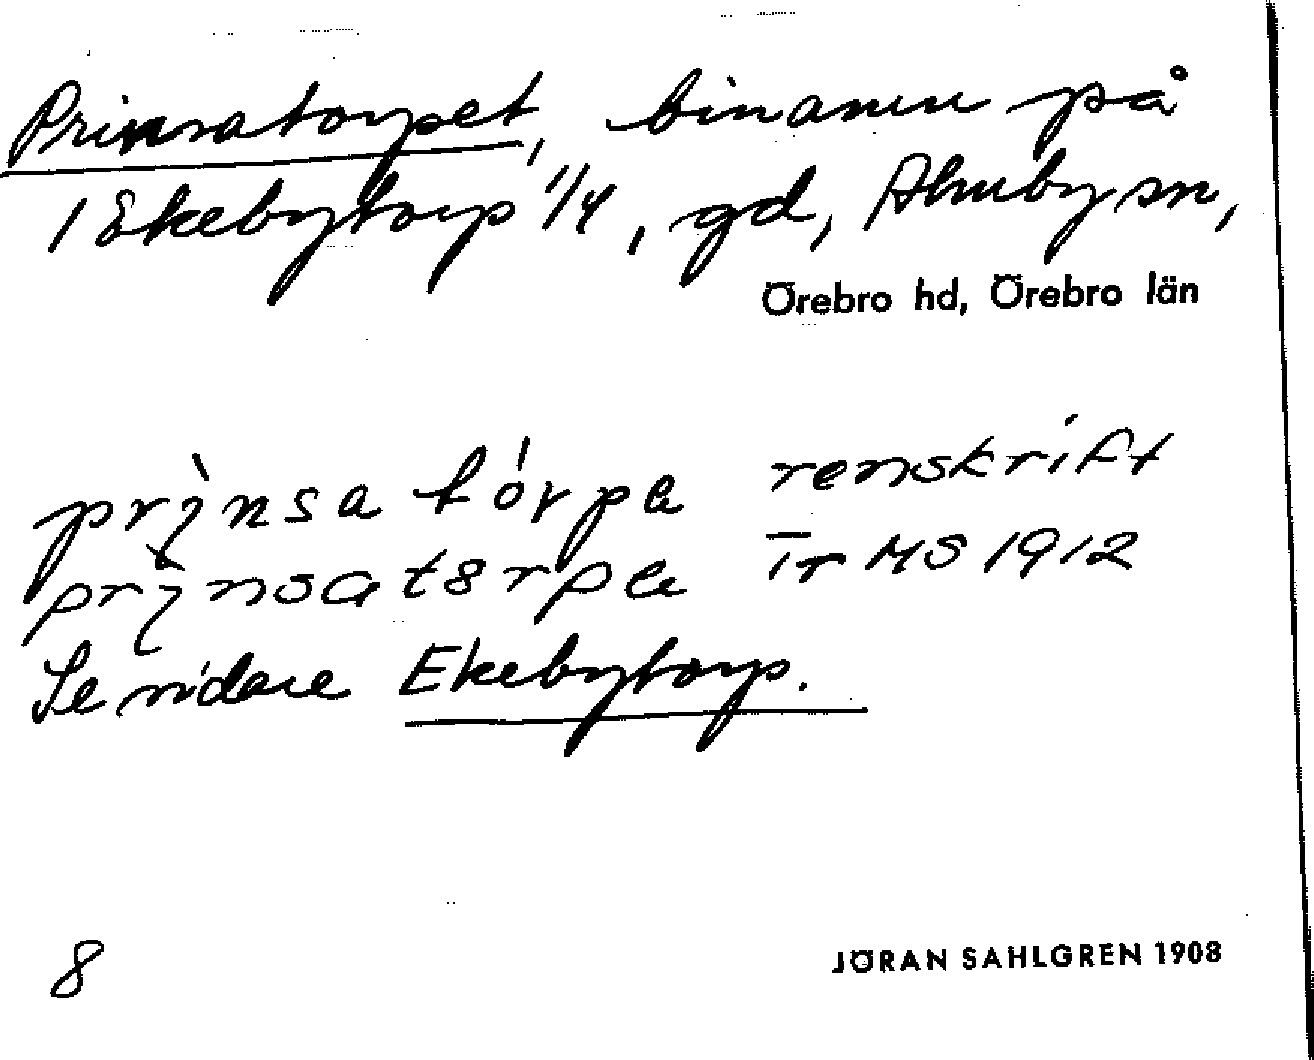 Prinsatorpet, binamn på
1 Ekebytorp 1/4, gd, Almby sn,
Örebro hd, Örebro län
prinsa tórpa renskrift
prinsatorpa Tr MS 1912
Se vidare Ekebytorp.
8
JÖRAN SAHLGREN 1908